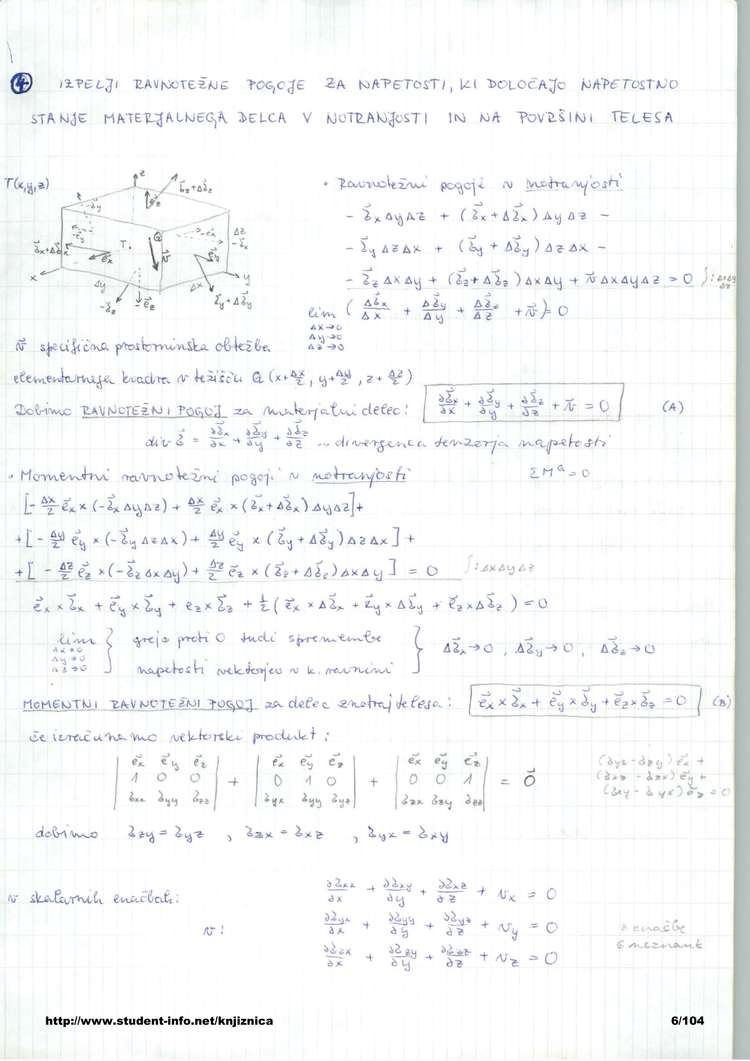 ④ IZPELJI RAVNOTEŽNE POGOJE ZA NAPETOSTI, KI DOLOČAJO NAPETOSTNO
STANJE MATERJALNEGA DELCA V NOTRANJOSTI IN NA POVRŠINI TELESA
T(x,y,z)
• Ravnotežni pogoji v notranjosti
- σ⃗x Δy Δz + (σ⃗x + Δσ⃗x) Δy Δz -
- σ⃗y Δz Δx + (σ⃗y + Δσ⃗y) Δz Δx -
- σ⃗z Δx Δy + (σ⃗z + Δσ⃗z) Δx Δy + v⃗ Δx Δy Δz = 0
lim (Δσ⃗x/Δx + Δσ⃗y/Δy + Δσ⃗z/Δz + v⃗) = 0
Δx→0
Δy→0
Δz→0
v⃗ specifična prostorninska obtežba
elementarnega kvadra v težišču Q (x+Δx/2, y+Δy/2, z+Δz/2)
Dobimo RAVNOTEŽNI POGOJ za materjalni delec: ∂σ⃗x/∂x + ∂σ⃗y/∂y + ∂σ⃗z/∂z + v⃗ = 0 (A)
div σ⃗ = ∂σ⃗x/∂x + ∂σ⃗y/∂y + ∂σ⃗z/∂z ... divergenca tenzorja napetosti
• Momentni ravnotežni pogoji v notranjosti ΣMᵃ = 0
[- Δx/2 e⃗x × (-σ⃗x Δy Δz) + Δx/2 e⃗x × (σ⃗x + Δσ⃗x) Δy Δz] +
+ [- Δy/2 e⃗y × (-σ⃗y Δz Δx) + Δy/2 e⃗y × (σ⃗y + Δσ⃗y) Δz Δx] +
+ [- Δz/2 e⃗z × (-σ⃗z Δx Δy) + Δz/2 e⃗z × (σ⃗z + Δσ⃗z) Δx Δy] = 0 /: Δx Δy Δz
e⃗x × σ⃗x + e⃗y × σ⃗y + e⃗z × σ⃗z + 1/2 (e⃗x × Δσ⃗x + e⃗y × Δσ⃗y + e⃗z × Δσ⃗z) = 0
lim } grejo proti 0 tudi spremembe
Δx→0
Δy→0
Δz→0 napetosti vektorjev v k. ravnini } Δσ⃗x → 0, Δσ⃗y → 0, Δσ⃗z → 0
MOMENTNI RAVNOTEŽNI POGOJ za delec znotraj telesa: e⃗x × σ⃗x + e⃗y × σ⃗y + e⃗z × σ⃗z = 0 (B)
če izračunamo vektorski produkt:
| e⃗x e⃗y e⃗z | | e⃗x e⃗y e⃗z | | e⃗x e⃗y e⃗z |
| 1 0 0 | + | 0 1 0 | + | 0 0 1 | = 0⃗
| σxx σyy σzz | | σyx σyy σyz | | σzx σzy σzz |
(σyz - σzy) e⃗x +
(σxz - σzx) e⃗y +
(σxy - σyx) e⃗z = 0
dobimo σzy = σyz , σzx = σxz , σyx = σxy
v skalarnih enačbah:
v:
∂σxx/∂x + ∂σxy/∂y + ∂σxz/∂z + vx = 0
∂σyx/∂x + ∂σyy/∂y + ∂σyz/∂z + vy = 0
∂σzx/∂x + ∂σzy/∂y + ∂σzz/∂z + vz = 0
3 enačbe
6 neznank
http://www.student-info.net/knjiznica 6/104